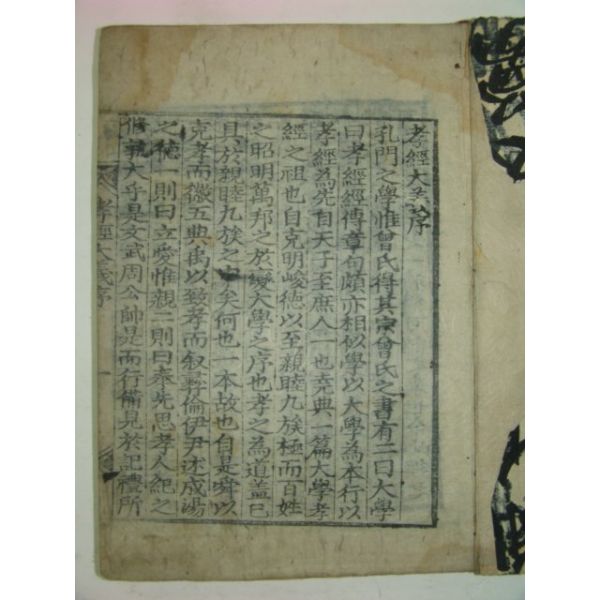 孝經大義序
孔門之學惟曾氏得其宗曾氏之書有二曰大學
曰孝經經傳章句頗亦相似學以大學為本行以
孝經為先自天子至庶人一也堯典一篇大學孝
經之祖也自克明峻德以至親睦九族極而百姓
之昭明萬邦之於變大學之序也孝之為道盖已
具於親睦九族之中矣何也一本故也自是舜以
克孝而徽五典禹以致孝而叙彛倫伊尹述成湯
之德一則曰立愛惟親二則曰奉先思孝人紀之
脩孰大乎是文武周公帥是而行備見於記禮所
孝經大義序
一